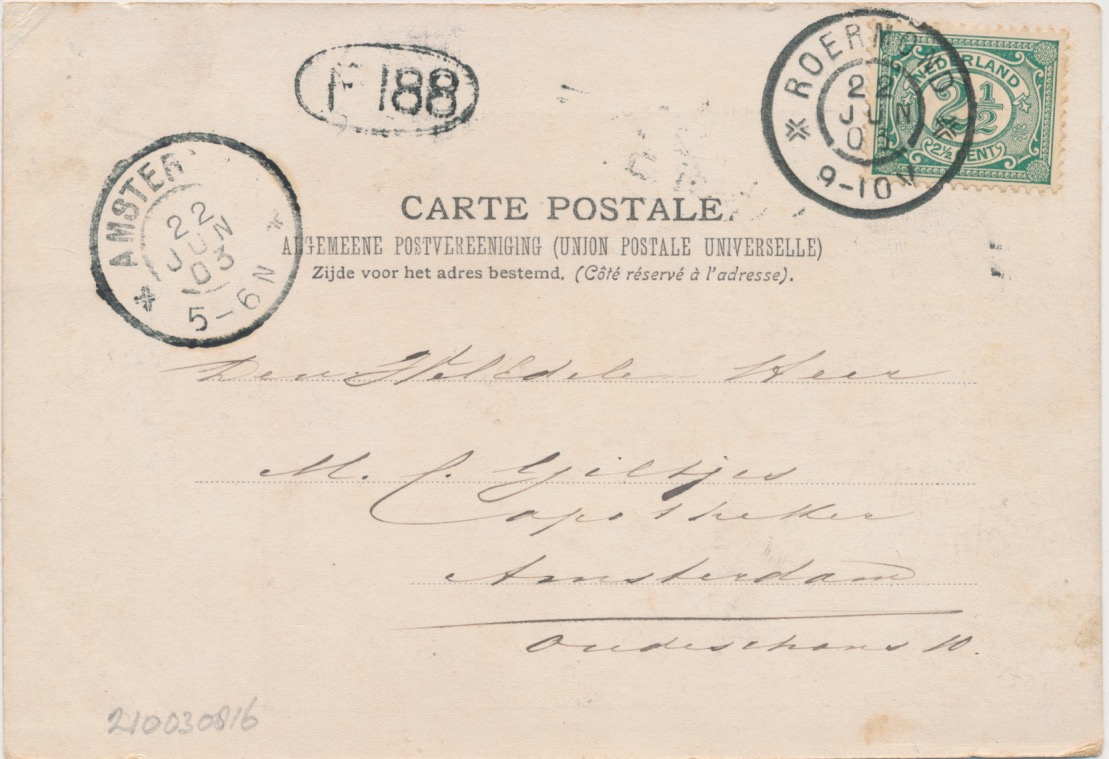 F 188
ROERMOND
22
JUN
03
9-10V
NEDERLAND
2 1/2
2½ CENT
AMSTER
22
JUN
03
5-6N
CARTE POSTALE.
ALGEMEENE POSTVEREENIGING (UNION POSTALE UNIVERSELLE)
Zijde voor het adres bestemd. (Côté réservé à l'adresse).
Den WelEdele Heer
M. C. Giltjes
Apotheker
Amsterdam
Oudeschans 10.
210030816